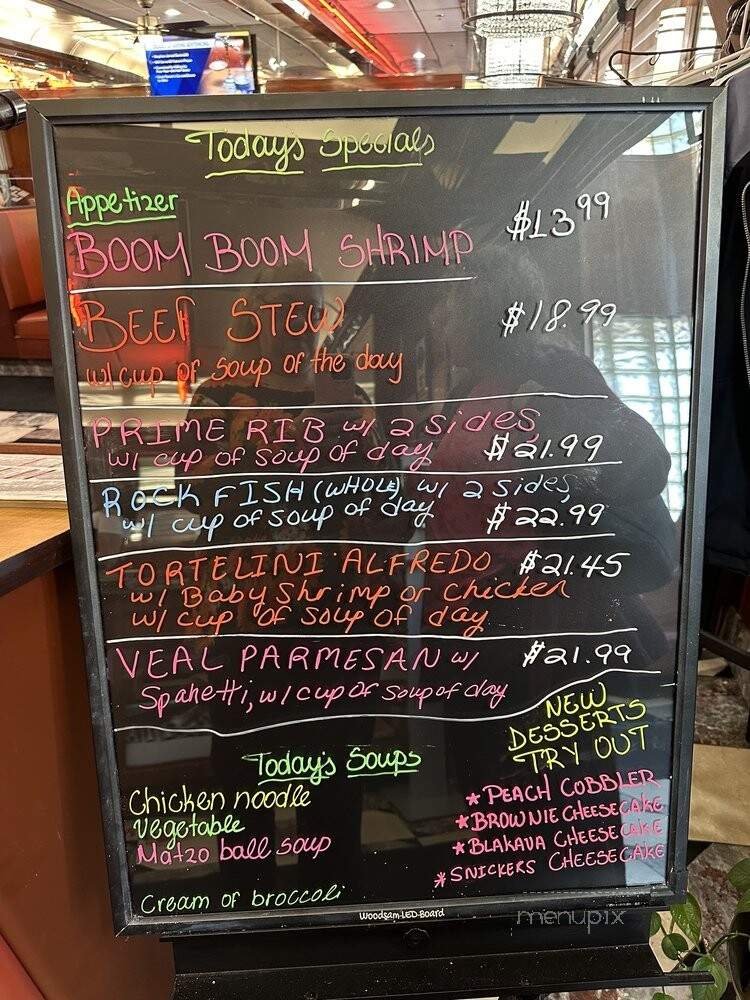 Today's Specials
Appetizer
$13.99
BOOM BOOM SHRIMP
BEEF STEW $18.99
w/ cup of soup of the day
PRIME RIB w/ 2 sides
w/ cup of soup of day $21.99
ROCK FISH (WHOLE) w/ 2 sides
w/ cup of soup of day $22.99
TORTELINI ALFREDO $21.45
w/ Baby Shrimp or chicken
w/ cup of soup of day
VEAL PARMESAN w/ $21.99
Spahetti, w/ cup of soup of day
NEW
DESSERTS
TRY OUT
Today's Soups
Chicken noodle
Vegetable
Matzo ball soup
Cream of broccoli
*PEACH COBBLER
*BROWNIE CHEESECAKE
*BLAKAVA CHEESECAKE
*SNICKERS CHEESECAKE
Woodsam-LED-Board
menupix